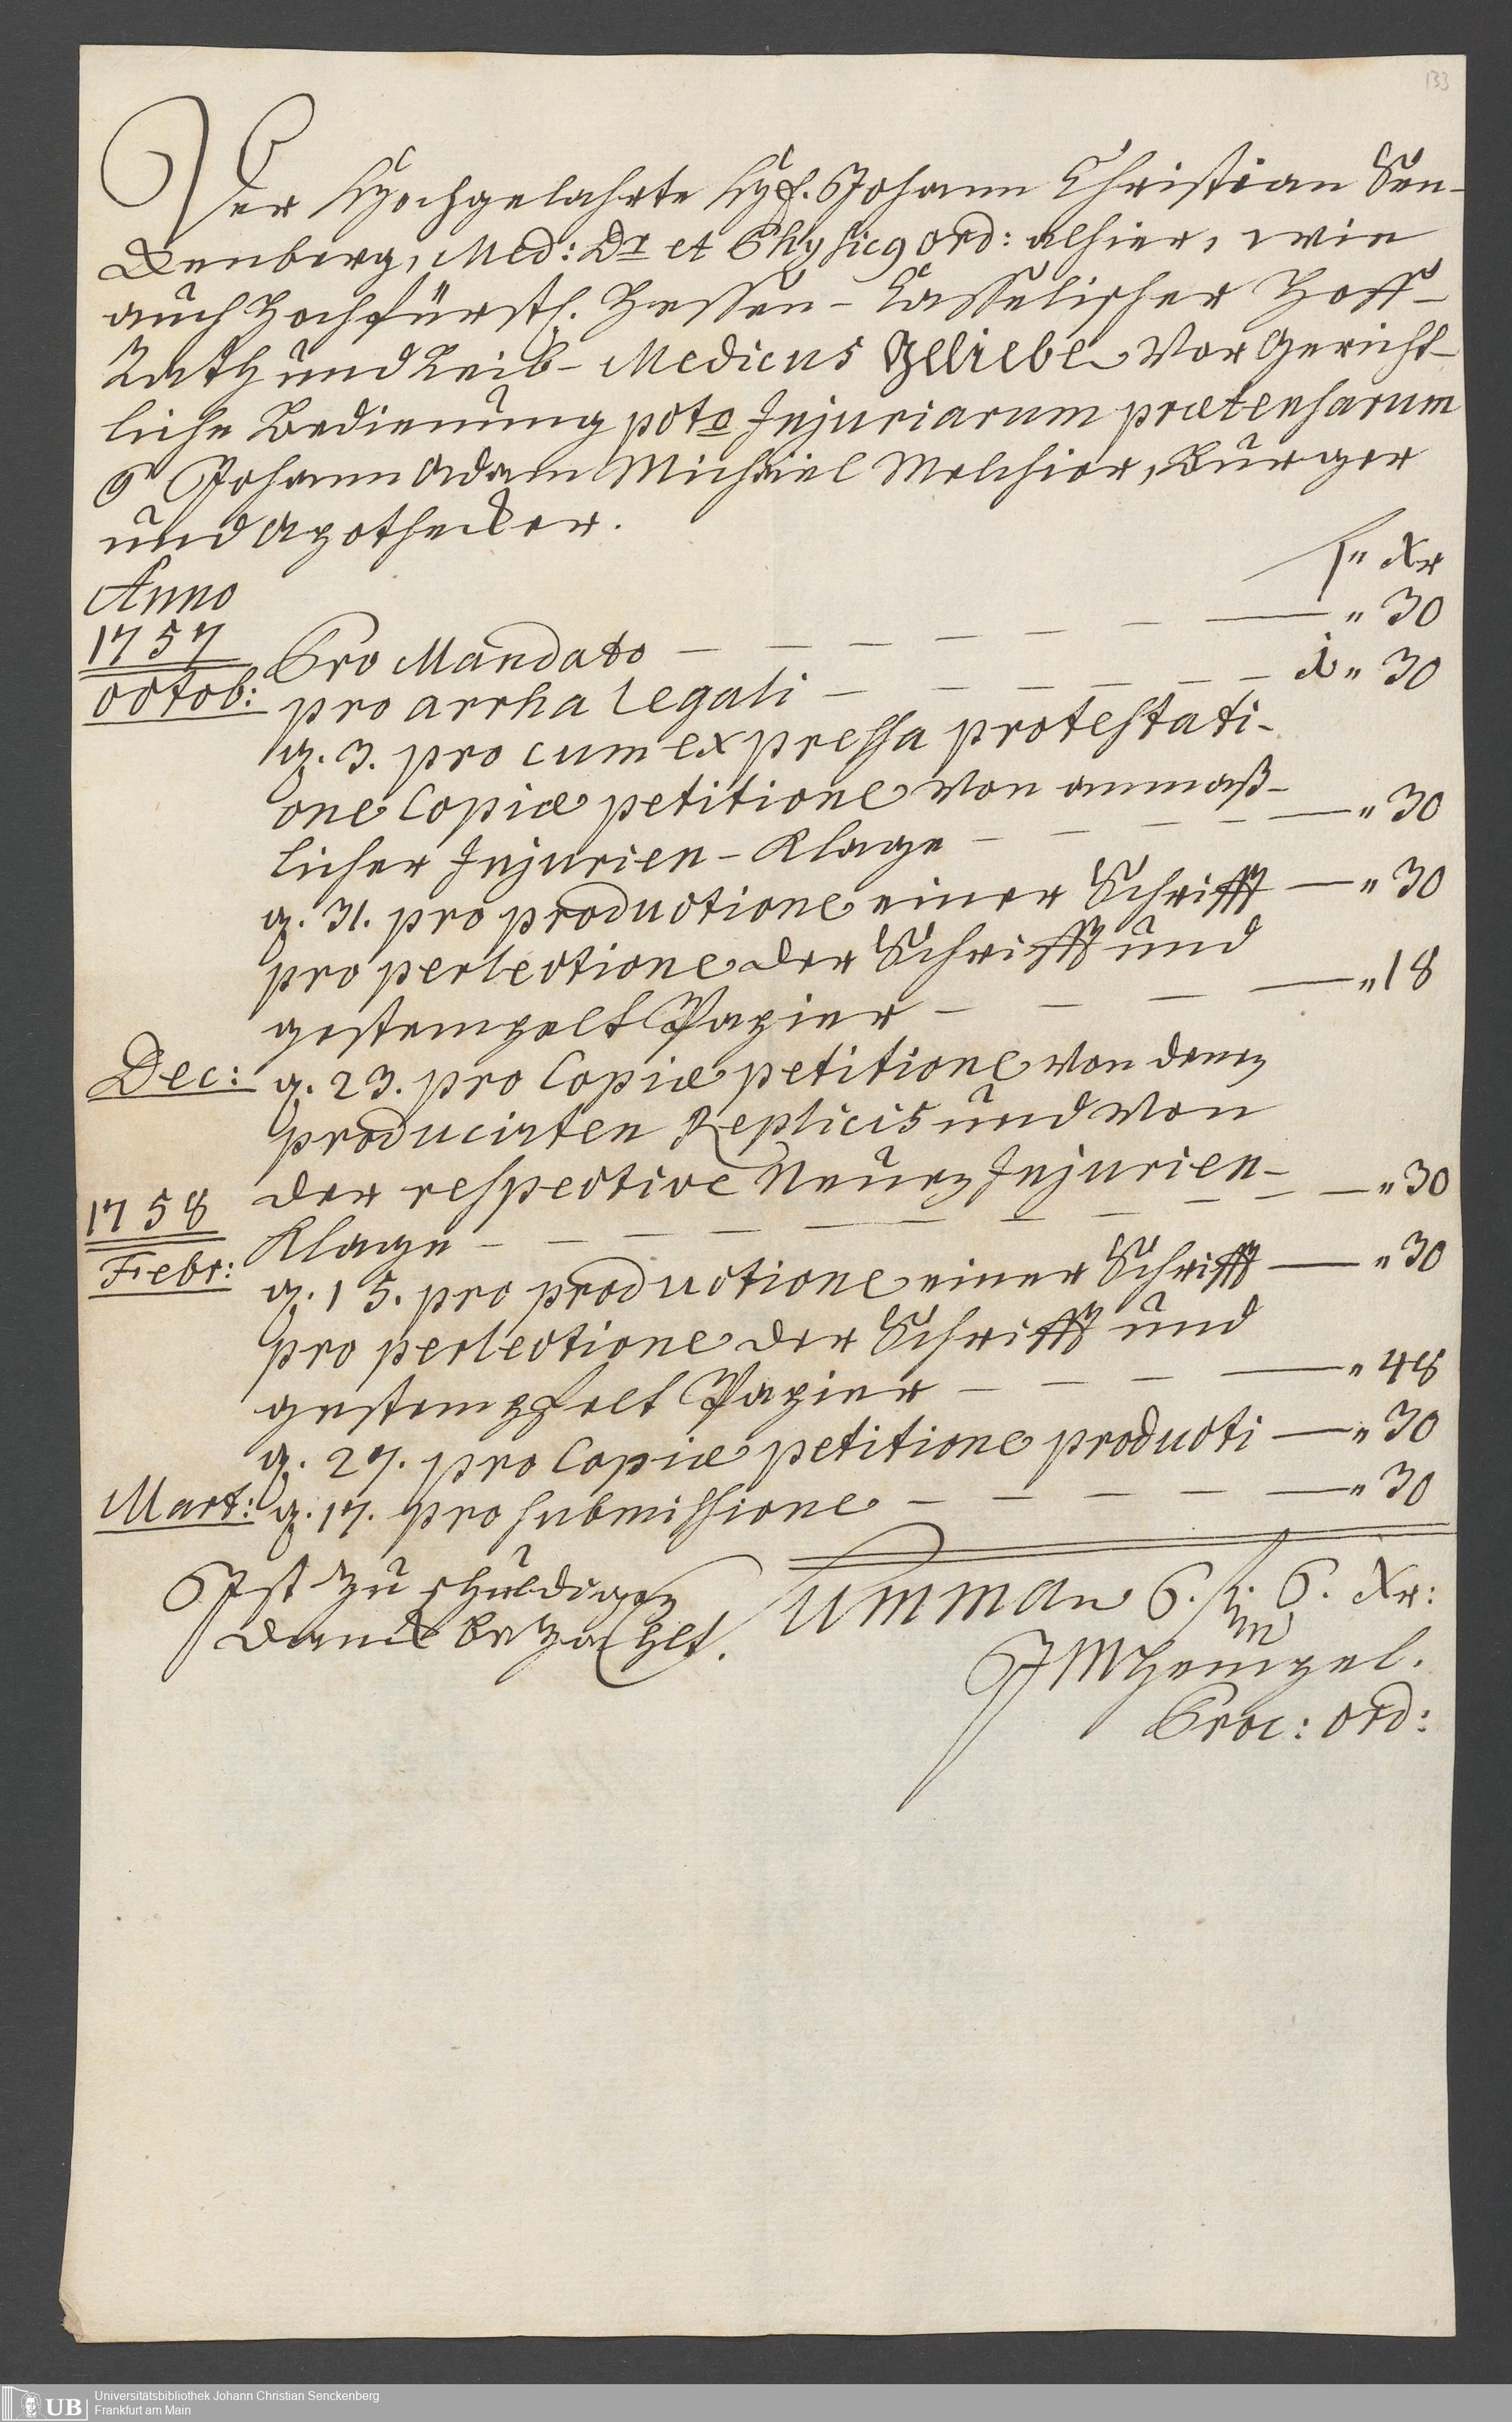 133
Der Hochgelahrte Hr. Johann Christian Sen-
ckenberg, Med: Dr et Physicq ord: alhier, wie
auch Hochfürstl. Hessen-Casselischer Hoff-
Rath und Leib-Medicus geliebe Vor Gericht-
liche Bedienung pcto Injuriarum praetensarum
Johann Adam Michael Melchior, Burger
und Apothecker.
f " Xr
Anno
1757
Pro Mandato — — — — — — — " 30
Octob: pro arrha legali — — — — — — 1 " 30
d. 3. pro cum expressa protestati-
one Copiae petitione von anmaß-
licher Injurien-Klage — — — — — " 30
d. 31. pro productione einer Schrifft — " 30
pro perlectione der Schrifft und
gestempelt Papier — — — — " 18
Dec: d. 23. pro Copiae petitione von denen
producirten Replicis und von
der respective Neuen Injurien-
1758
Klage — — — — — — — — — — " 30
Febr: d. 15. pro productione einer Schrifft — " 30
pro perlectione der Schrifft und
gestempfelt Papier — — — — " 48
d. 27. pro Copiae petitione producti — " 30
Mart: d. 17. pro submissione — — — — — " 30
Summa 6. f. 6. Xr:
Ist zu schuldigen
Danck bezahlt.
Proc: ord:
UB
Universitätsbibliothek Johann Christian Senckenberg
Frankfurt am Main